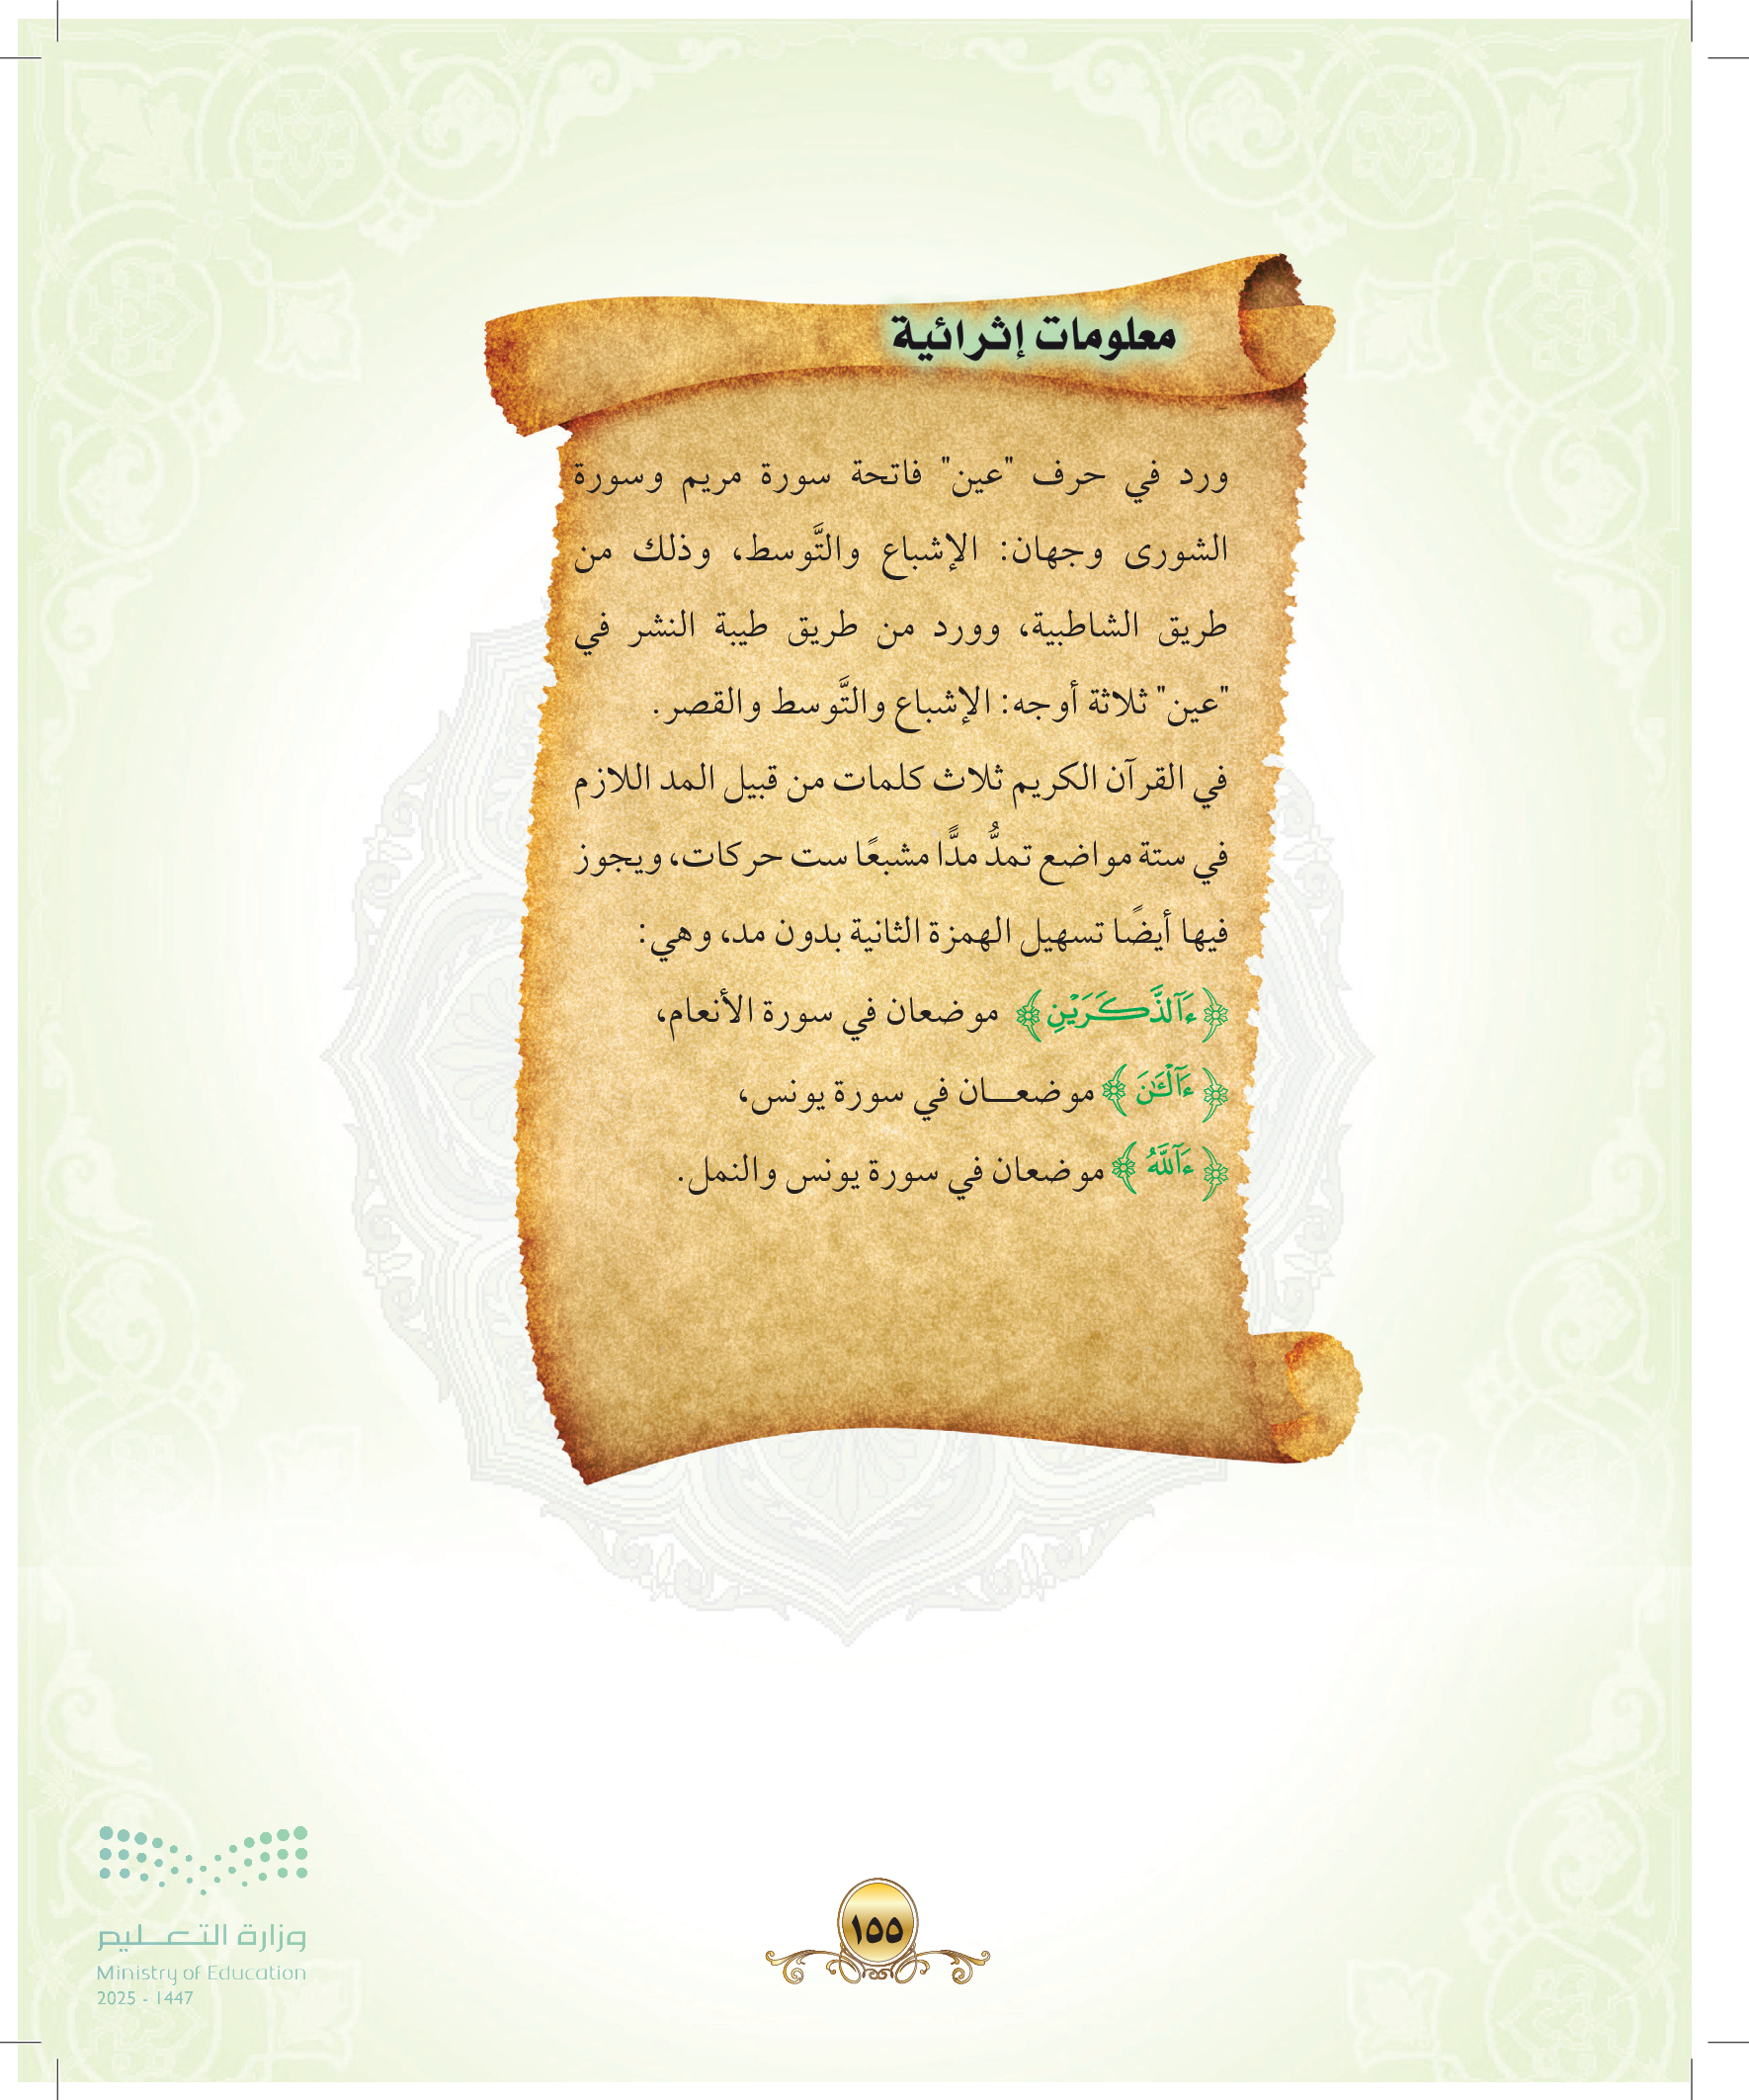 معلومات إثرائية
ورد في حرف "عين" فاتحة سورة مريم وسورة
الشورى وجهان: الإشباع والتَّوسط، وذلك من
طريق الشاطبية، وورد من طريق طيبة النشر في
"عين" ثلاثة أوجه: الإشباع والتَّوسط والقصر.
في القرآن الكريم ثلاث كلمات من قبيل المد اللازم
في ستة مواضع تمدُّ مدًّا مشبعًا ست حركات، ويجوز
فيها أيضًا تسهيل الهمزة الثانية بدون مد، وهي:
﴿ءَآلذَّكَرَيۡنِ﴾ موضعان في سورة الأنعام،
﴿ءَآلۡـَٰٔنَ﴾ موضعـــان في سورة يونس،
﴿ءَآللَّهُ﴾ موضعان في سورة يونس والنمل.
وزارة التعـــليم
Ministry of Education
2025 - 1447
١٥٥